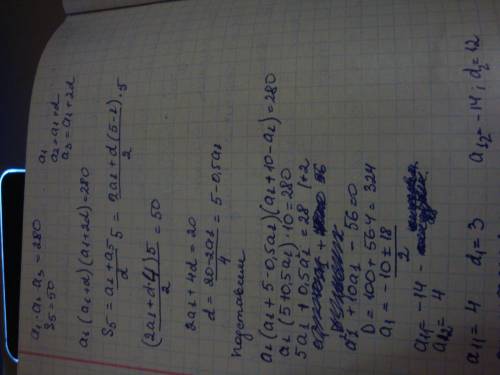 a₁·a₂·a₃ = 280
S₅ = 50
a₁
a₂ = a₁ + d
a₃ = a₁ + 2d
a₁(a₁+d)(a₁+2d) = 280
S₅ = a₁ + a₅ / 2 · 5 = 2a₁ + d(5-1) / 2 · 5
(2a₁ + d·4)5 / 2 = 50
2a₁ + 4d = 20
d = 20 - 2a₁ / 4 = 5 - 0,5a₁
подставим
a₁(a₁ + 5 - 0,5a₁)(a₁ + 10 - a₁) = 280
a₁(5 + 0,5a₁)·10 = 280
5a₁ + 0,5a₁² = 28 |·2
a₁² + 10a₁ - 56 = 0
D = 100 + 56·4 = 324
a₁ = -10 ± 18 / 2
a₁₁ = -14
a₁₂ = 4
a₁₁ = 4 d₁ = 3 a₁₂ = -14; d₂ = 12